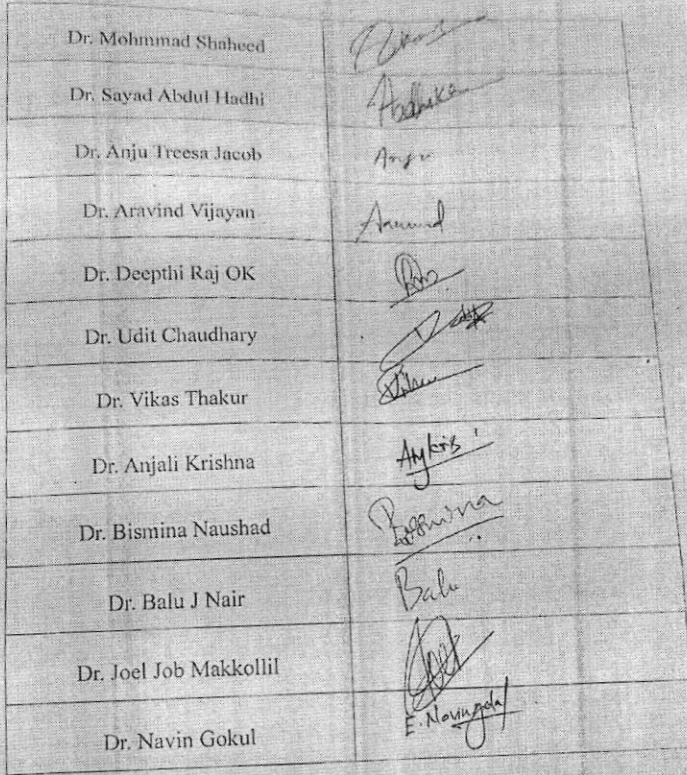 Dr. Mohmmad Shaheed
Dr. Sayad Abdul Hadhi
Dr. Anju Treesa Jacob Anju
Dr. Aravind Vijayan
Dr. Deepthi Raj OK
Dr. Udit Chaudhary
Dr. Vikas Thakur
Dr. Anjali Krishna
Dr. Bismina Naushad
Dr. Balu J Nair Balu
Dr. Joel Job Makkollil
Dr. Navin Gokul